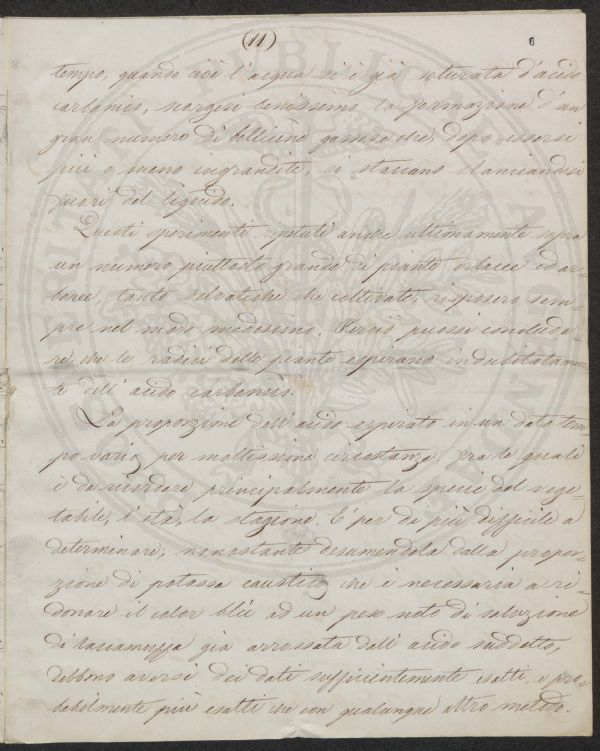 (11)
6
tempo, quando cioè l'acqua si è già saturata d'acido
carbonico, scorgesi benissimo la formazione d'un
gran numero di bollicine gassose che, dopo essersi
più o meno ingrandite, si staccano slanciandosi
fuori del liquido.
Questi sperimenti ripetuti anche ultimamente sopra
un numero piuttosto grande di piante erbacee ed ar=
boree, tanto selvatiche che coltivate, risposero sem=
pre nel modo medesimo. Perciò puossi conclude=
re, che le radici delle piante esperano indubitatamen=
te dell'acido carbonico.
La proporzione dell'acido esperato in un dato tem=
po varia per moltissime circostanze, fra le quali
è da ricordare principalmente la specie del vege=
tabile, l'età, la stagione. E' per di più difficile a
determinare; nonostante desumendola dalla propor=
zione di potassa caustica che è necessaria a ri=
donare il color blù ad un peso noto di soluzione
di laccamuffa già arrossata dall'acido suddetto,
debbono aversi dei dati sufficientemente esatti, e pro=
babilmente più esatti che con qualunque altro metodo.